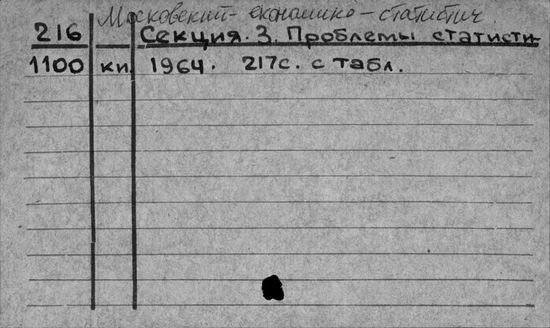 Московский - економико - статистич.
216 Секция. 3. Проблемы статисти-
1100 ки 1964. 217с. с табл.